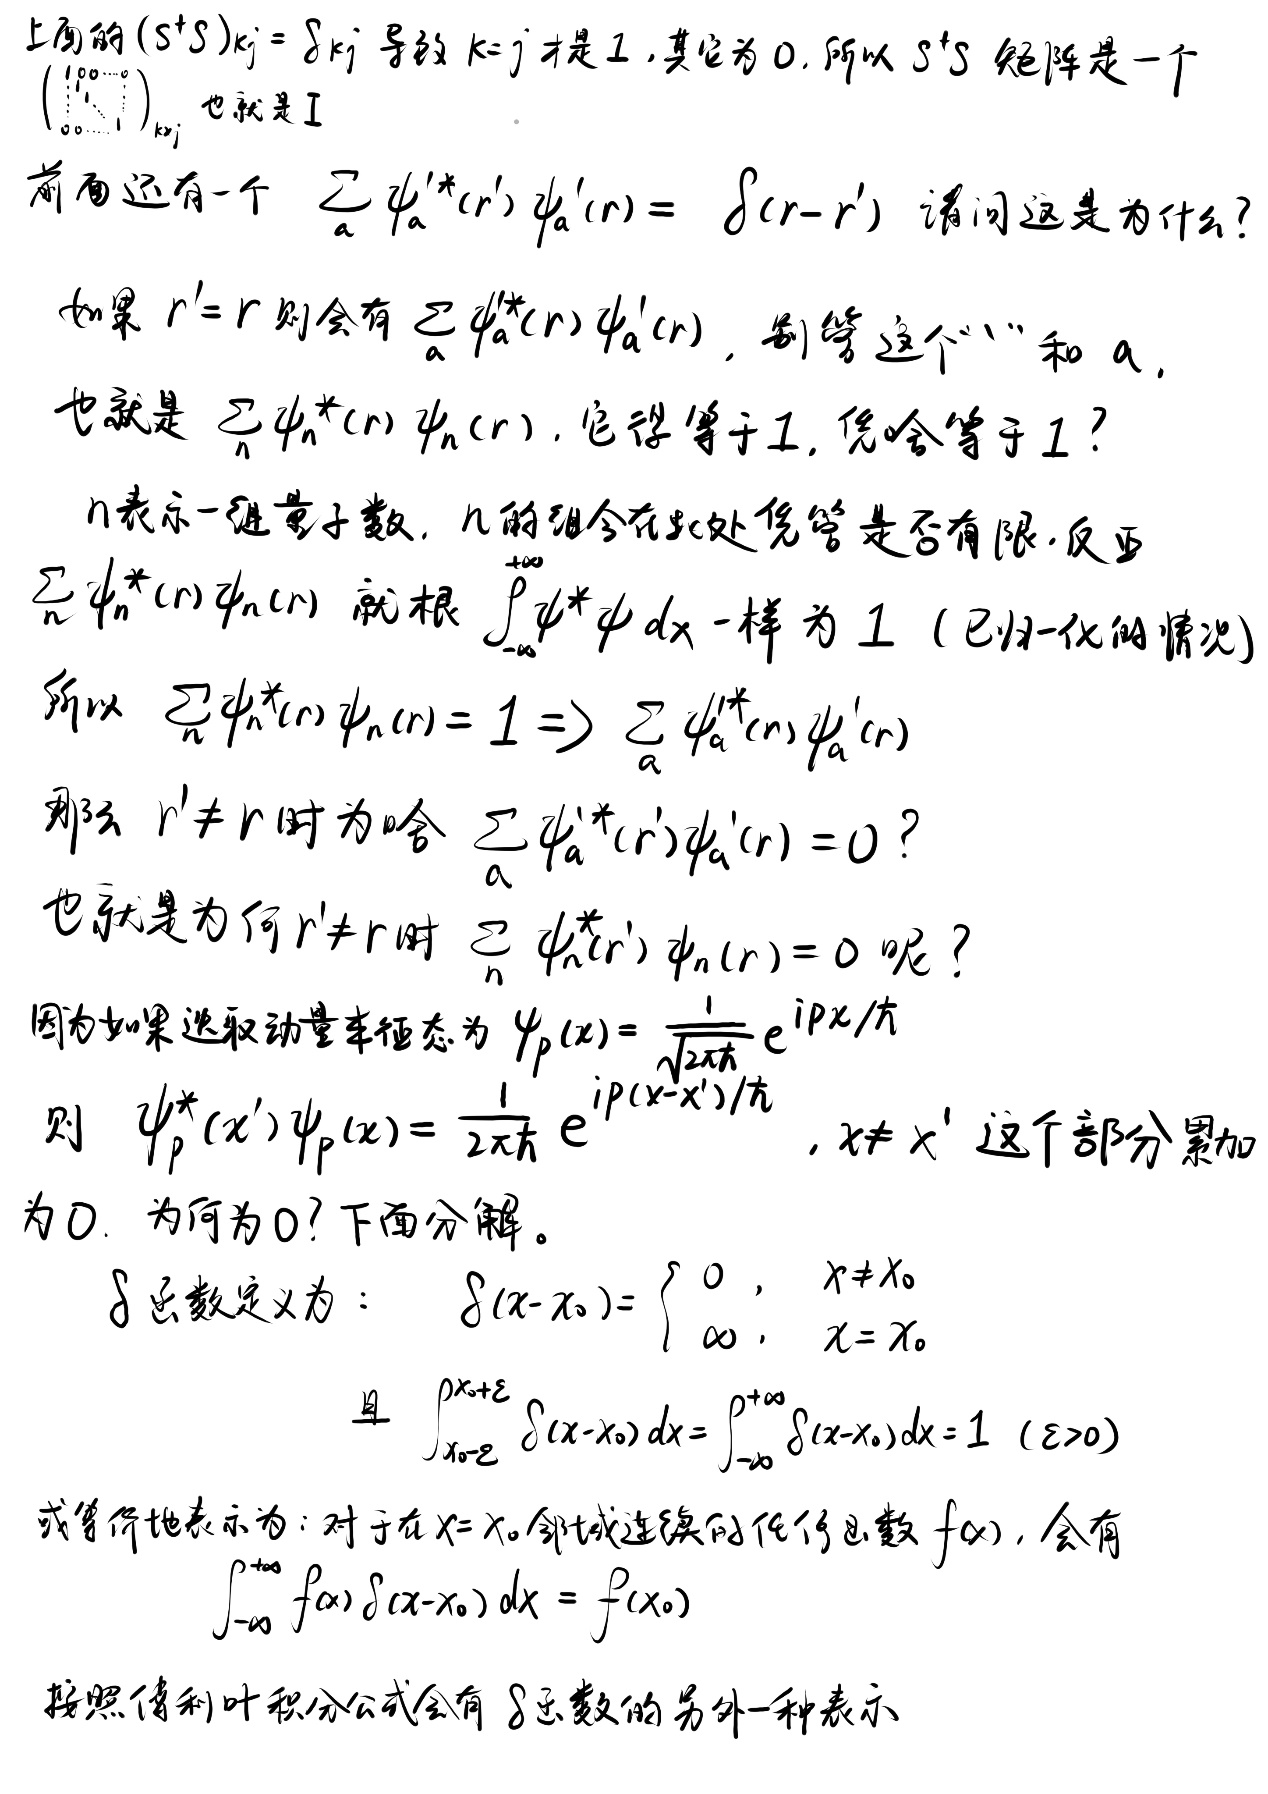 上面的 (S⁺S)kj = δkj 导致 k=j 才是1,其它为0.所以 S⁺S 矩阵是一个
(1 0 0 ⋯ 0 1 1 ⋱ 0 0 ⋯ 1)k×j 也就是I
前面还有一个 ∑a ψa'*(r') ψa'(r) = δ(r-r') 请问这是为什么?
如果 r'=r 则会有 ∑a ψa'*(r) ψa'(r),别管这个“'”和 a,
也就是 ∑n ψn*(r) ψn(r).它得等于1,凭啥等于1?
n表示一组量子数.n的组合在此处凭管是否有限.反正
∑n ψn*(r) ψn(r) 就根 ∫-∞+∞ ψ*ψ dx 一样为 1 (已归一化的情况)
所以 ∑n ψn*(r) ψn(r) = 1 => ∑a ψa'*(r) ψa'(r)
那么 r'≠r 时为啥 ∑a ψa'*(r') ψa'(r) = 0?
也就是为何 r'≠r 时 ∑n ψn*(r') ψn(r) = 0 呢?
因为如果选取动量本征态为 ψp(x) = 1/√(2πħ) e^{ipx/ħ}
则 ψp*(x') ψp(x) = 1/(2πħ) e^{ip(x-x')/ħ},x≠x' 这个部分累加
为0. 为何为0?下面分解。
δ函数定义为: δ(x-x₀) = { 0, x≠x₀
∞, x=x₀
且 ∫x₀-ε x₀+ε δ(x-x₀) dx = ∫-∞+∞ δ(x-x₀) dx = 1 (ε>0)
或等价地表示为:对于在 x=x₀ 邻域连续的任何函数 f(x),会有
∫-∞+∞ f(x) δ(x-x₀) dx = f(x₀)
按照傅利叶积分公式会有 δ函数的另外一种表示